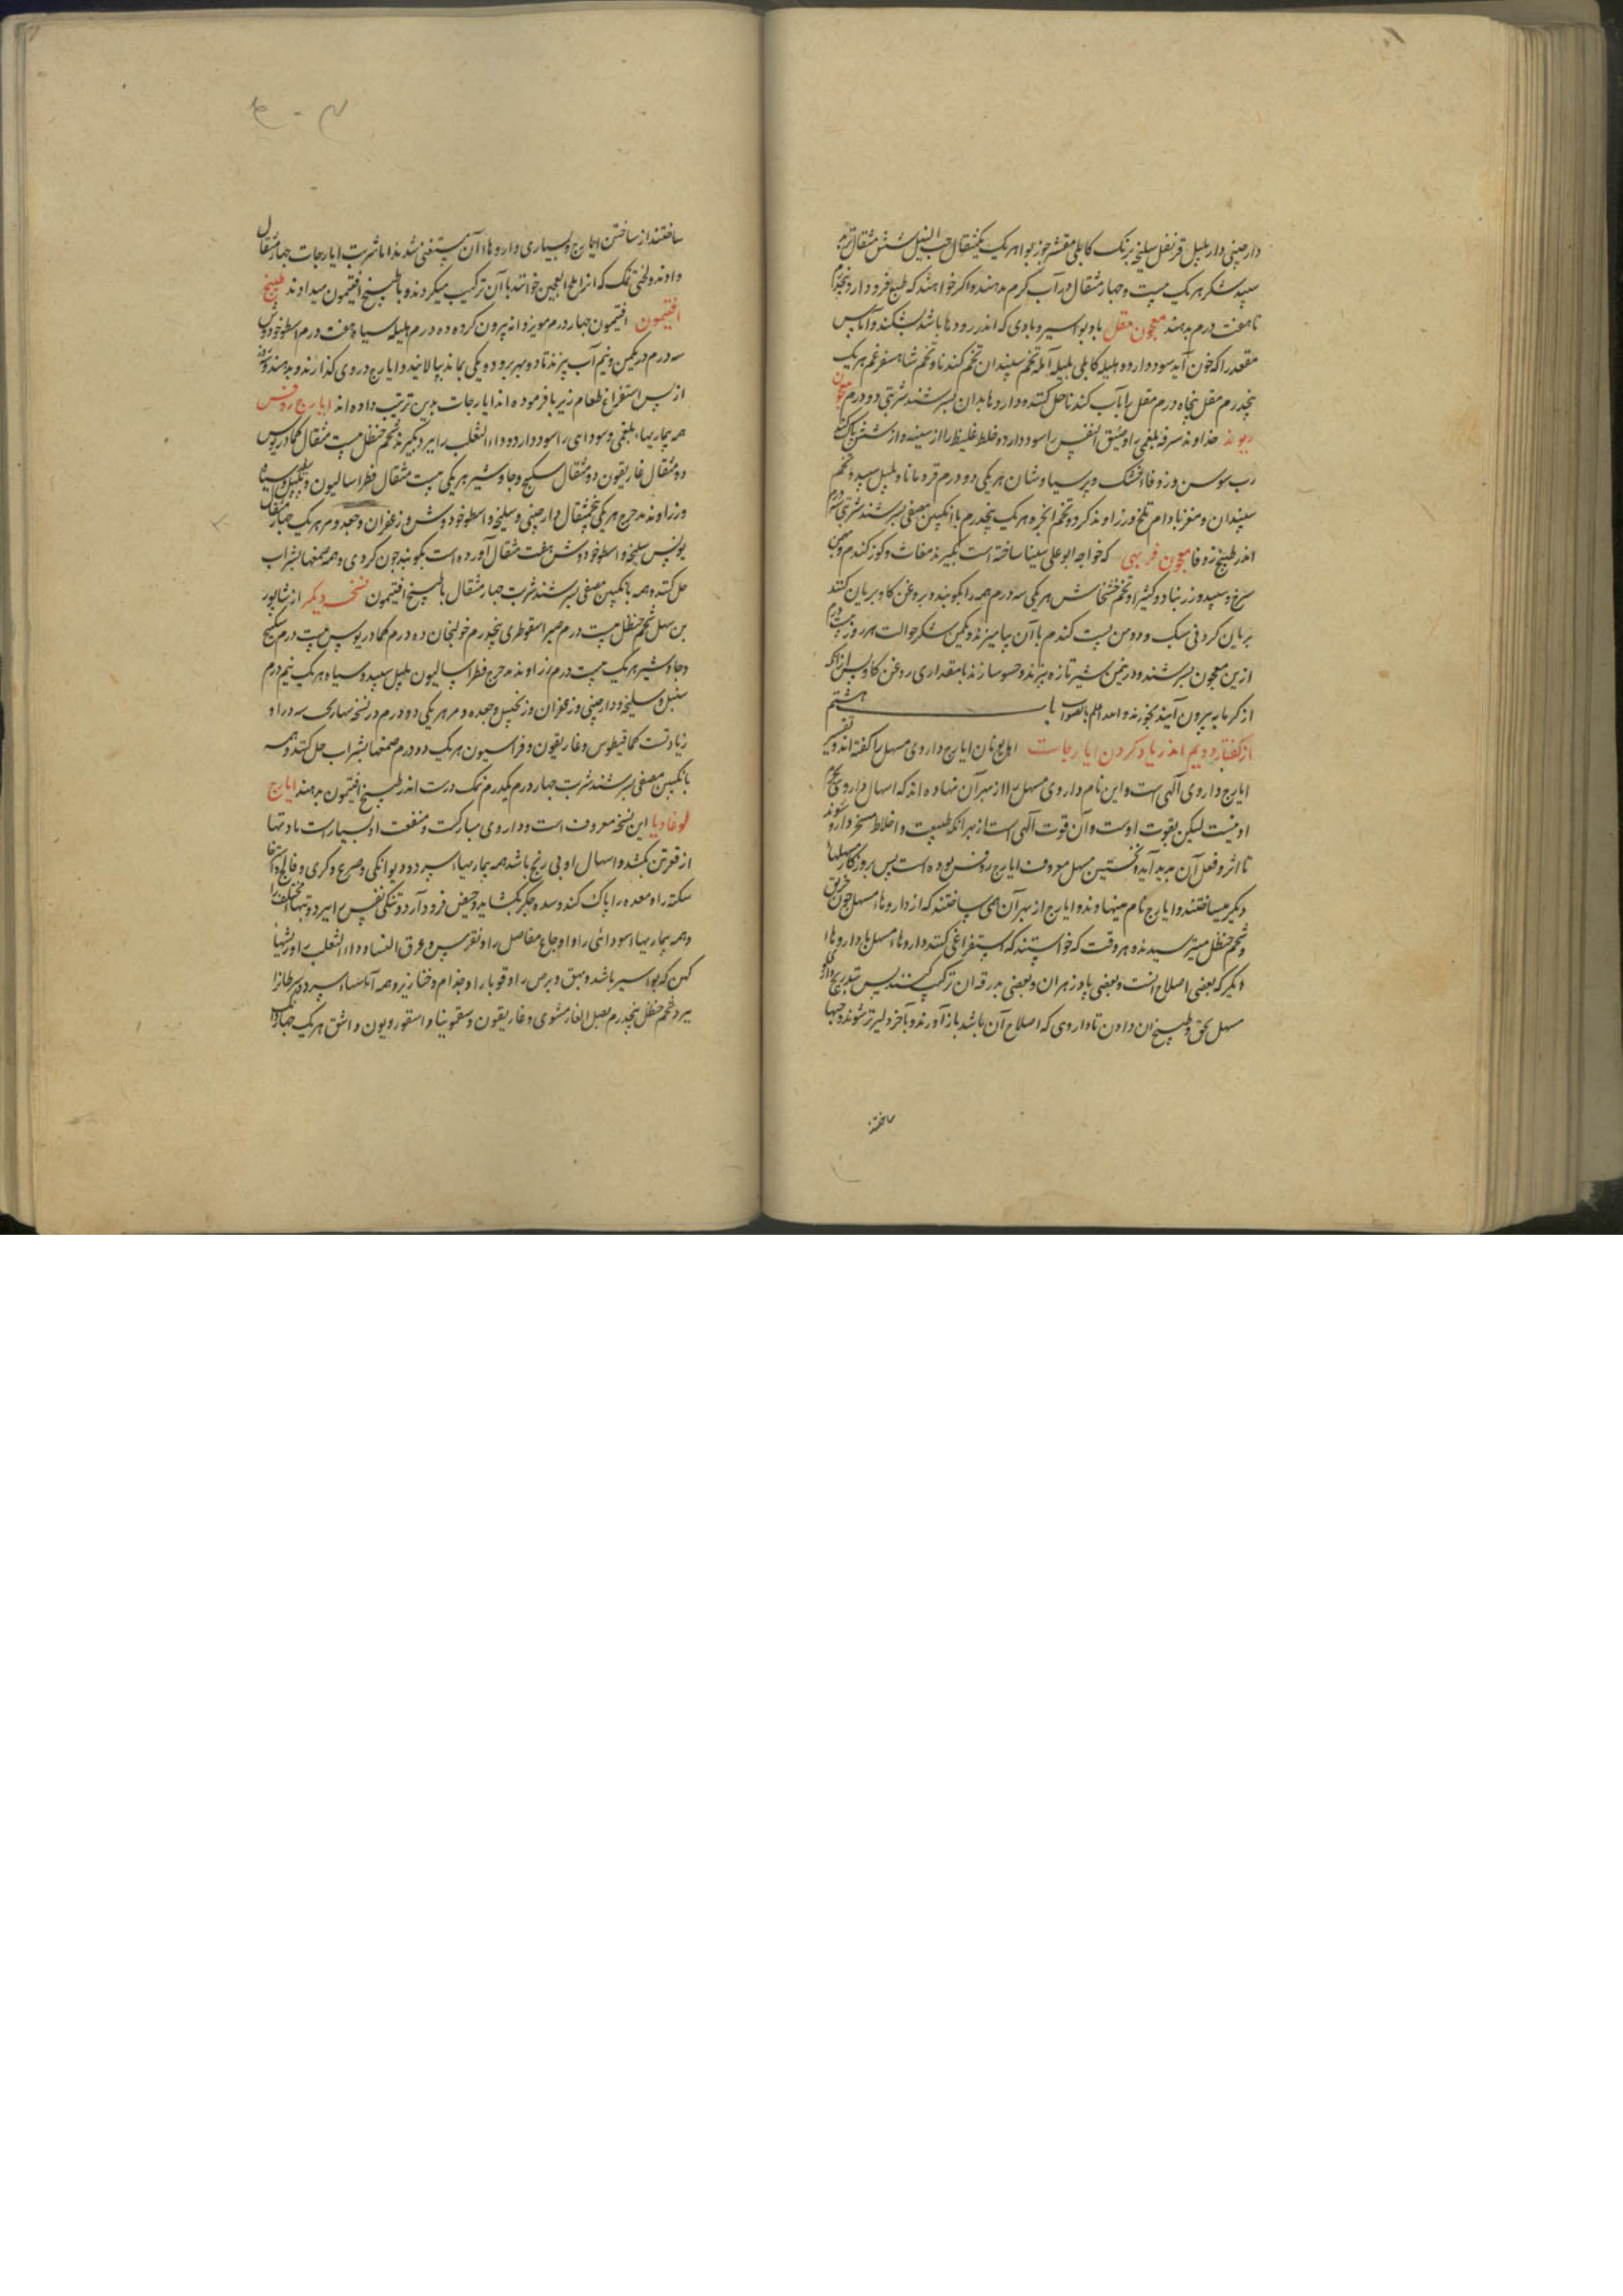 دارچینی دار پلپل قرنفل سلیخه برنک کابلی مقشر جوز بوا هر یک یکمثقال حب النیل شش مثقال تربد
سپید شکر هر یک بیست و چهار مثقال در آب کرم بدهند و اکر خواهند که طبع فرود آرد پنجدرم
تا هفت درم بدهند معجون مقل باد بواسیر و بادی که اندر رودها باشد بشکند و آماس
مقعد را که خون آید سود دارد هلیله کابلی بلیله آمله تخم سپندان تخم کندنا و تخم شاهسفرغم هر یک
پنجدرم مقل پنجاه درم مقل را بآب کندنا حل کنند و داروها بدان بسرشند شربتی دو درم معجون
ریوند خداوند سرفه بلغمی را و ضیق النفس را سود دارد و خلط غلیظ را از سینه و از شش پاک کند
رب سوس و زوفاء خشک و پرسیاوشان هر یکی دو درم قردمانا و پلپل سپید و تخم
سپندان و مغز بادام تلخ و زراوند کرد و تخم انجره هر یک پنجدرم با انکبین مصفی بسرشند شربتی سه درم
اندر طبیخ زوفا معجون فربهی که خواجه ابو علی سینا ساخته است بکیرند مغاث و کوز کندم و بهمن
سرخ و سپید و زرنباد و کثیرا و تخم خشخاش هر یکی سه درم همه را بکوبند و بروغن کاو بریان کنند
بریان کردنی سبک و دو من پست کندم با آن بیامیزند و یکمن شکر حوالت هر روز بیست درم
ازین معجون بسرشند و در نیمن شیر تازه بپزند و حسو سازند با مقداری روغن کاو پس از آنکه
از کرمابه بیرون آیند بخورند و الله اعلم بالصواب باب هشتم
از کفتار دویم اندر یاد کردن ایارجات اهل یونان ایارج داروی مسهل را کفته اند و تفسیر
ایارج داروی آلهی است و این نام داروی مسهل را از بهر آن نهاده اند که اسهال داروی بجرم
او نیست لیکن بقوت اوست و آن قوت آلهی است از بهر آنکه طبیعت و اخلاط مسخر دارو شوند
تا اثر و فعل آن پدید آید و نخستین مسهل معروف ایارج روفس بوده است پس بروزکار مسهلها
دیکر میساختند و ایارج نام مینهادند و ایارج از بهر آن همی ساختند که از داروهاء مسهل چون خربق
و شحم حنظل میترسیدند و هر وقت که خواستند که استفراغی کنند داروهاء مسهل با داروهاء
دیکر که بعضی اصلاح آنست و بعضی پادزهر آن و بعضی بدرقه آن ترکیب کنند پس بتدریج داروی
مسهل بحق و طبیخ آن دادن تا داروی که اصلاح آن باشد باز آوردند و بآخر دلیرتر شوند و حبها
ساختند
ساختند از ساختن ایارج و بسیاری داروهاء آن مستغنی شدند اما شربت ایارجات چهار مثقال
دادند و لختی نمک که آنرا ملح العجین خوانند با آن ترکیب میکردند و با طبیخ افتیمون میدادند طبیخ
افتیمون افتیمون چهار درم مویز دانه بیرون کرده ده درم هلیله سیاه هفت درم اسطوخودوس
سه درم در یکمن و نیم آب بپزند تا دو بهر برود و یکی بماند بپالایند و ایارج در وی کذارند و بدهند و روز
از پس استفراغ طعام زیربا فرموده اند ایارجات بدین ترتیب داده اند ایارج روفس
همه بیماریهاء بلغمی و سوداوی را سود دارد و داء الثعلب را ببرد بکیرند شحم حنظل بیست مثقال کمادریوس
ده مثقال غاریقون ده مثقال سکبینج و جاوشیر هر یکی بیست مثقال فطراسالیون و پلپل سپید و سیاه
و زراوند مدحرج هر یکی پنجمثقال دارچینی و سلیخه و اسطوخودوس و زعفران و جعده و مر هر یک چهار مثقال
بولس سلیخه و اسطوخودوس هفت مثقال آورده است بکوبند چون کردی و همه صمغها بشراب
حل کنند و همه بانکبین مصفی بسرشند شربت چهار مثقال با طبیخ افتیمون نسخه دیکر از شاپور
بن سهل شحم حنظل بیست درم صبر اسقوطری پنجدرم خولنجان ده درم کمادریوس بیست درم سکبینج
و جاوشیر هر یک بیست درم زراوند مدحرج فطراسالیون پلپل سپید و سیاه هر یک نیم درم
سنبل و سلیخه و دارچینی و زعفران و زنجبیل و جعده و مر هر یکی دو درم در نسخه دارو
زیادتست کمافیطوس و غاریقون و فراسیون هر یک ده درم صمغها بشراب حل کنند و همه
بانکبین مصفی بسرشند شربت چهار درم یکدرم نمک درست اندر طبیخ افتیمون بدهند ایارج
لوغادیا این نسخه معروف است و داروی مبارکست و منفعت او بسیار است مادتها
از قعر تن بکشد و اسهال او بی رنج باشد همه بیماریهاء سپرد و دیوانکی و صرع و کری و فالج و استرخا
سکته را و معده را پاک کند و سده جکر بکشاید و حیض فرود آرد و تنکی نفس را ببرد و تبهاء مختلف را
و همه بیماریهاء سودائی را و اوجاع مفاصل را و نقرس و عرق النسا و داء الثعلب را و ریشهاء
کهن که بواسیر باشد و بهق و برص را و قوبا را و جذام و خنازیر و همه آماسهاء سپرد و سرطانرا
ببرد شحم حنظل پنجدرم بصل الفار مشوی و غاریقون و سقمونیا و اسقوردیون و اشق هر یک چهار درم